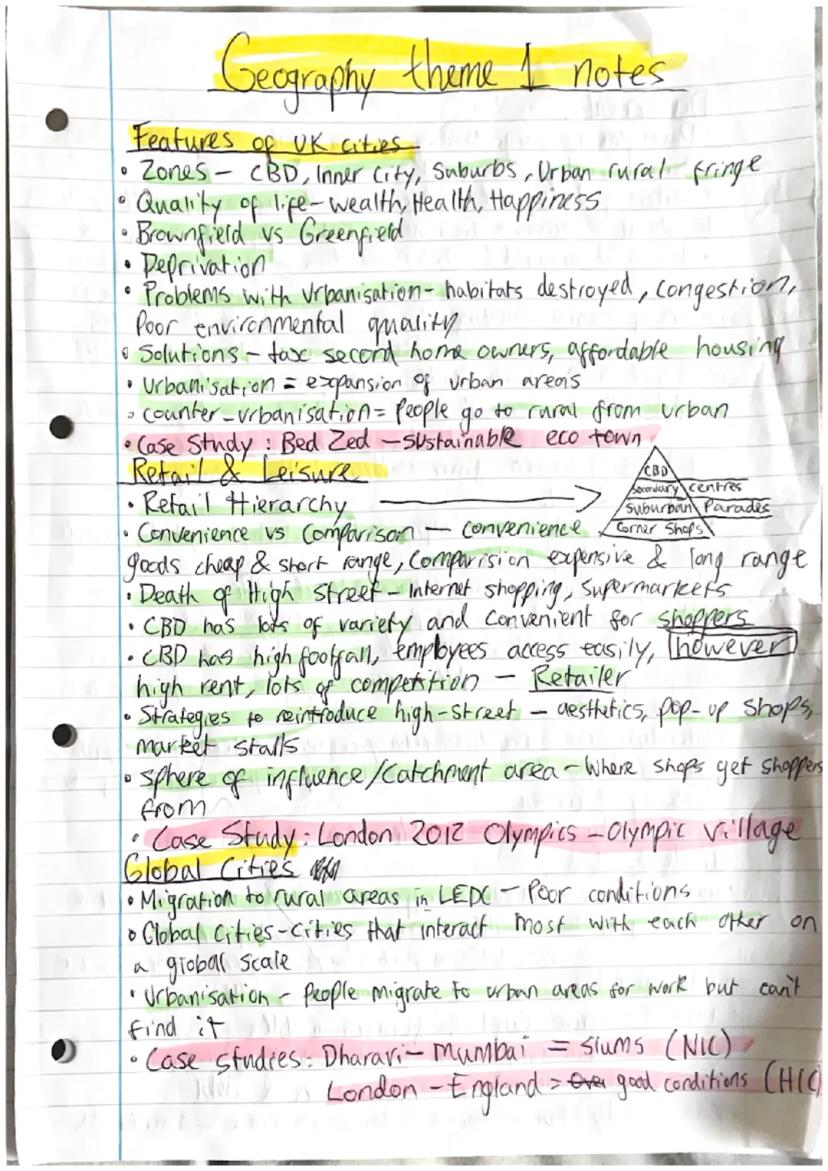 Geography theme 1 notes
Features of UK cities
• Zones – CBD, Inner City, Suburbs, Urban rural fringe
• Quality of life – wealth, Health, Happiness
• Brownfield vs Greenfield
• Deprivation
• Problems with Urbanisation – habitats destroyed, congestion,
Poor environmental quality
• Solutions – tax second home owners, affordable housing
• Urbanisation = expansion of urban areas
• counter-urbanisation = People go to rural from urban
• Case Study : Bed Zed – sustainable eco town
Retail & Leisure
• Retail Hierarchy
CBD
Secondary centres
Suburban Parades
Corner Shops
• Convenience vs Comparison – convenience
goods cheap & short range, Comparision expensive & long range
• Death of High Street – Internet shopping, Supermarkets
• CBD has lots of variety and convenient for shoppers
• CBD has high footfall, employees access easily, however
high rent, lots of competition – Retailer
• Strategies to reintroduce high-street – aesthetics, pop-up shops,
market stalls
• Sphere of influence/Catchment area – Where shops get shoppers
from
• Case Study : London 2012 Olympics – Olympic village
Global Cities
• Migration to rural areas in LEDC – Poor conditions
• Global Cities – Cities that interact most with each other on
a global scale
• Urbanisation – People migrate to urban areas for work but can't
find it
• Case studies : Dharavi – Mumbai = slums (NIC)
London – England = good conditions (HIC)